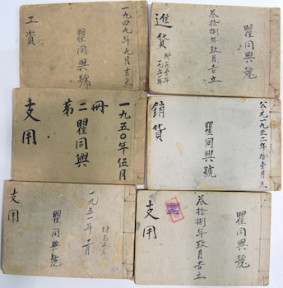 工資
瞿同興號
一九四九年九月吉立
進貨
叁拾捌年玖月吉立
瞿同興號
支用
第二冊
瞿同興
一九五〇年伍月
銷貨
瞿同興號
公元一九五二年
支用
瞿同興號
一九五一年二月
支用
叁拾捌年玖月吉立
瞿同興號